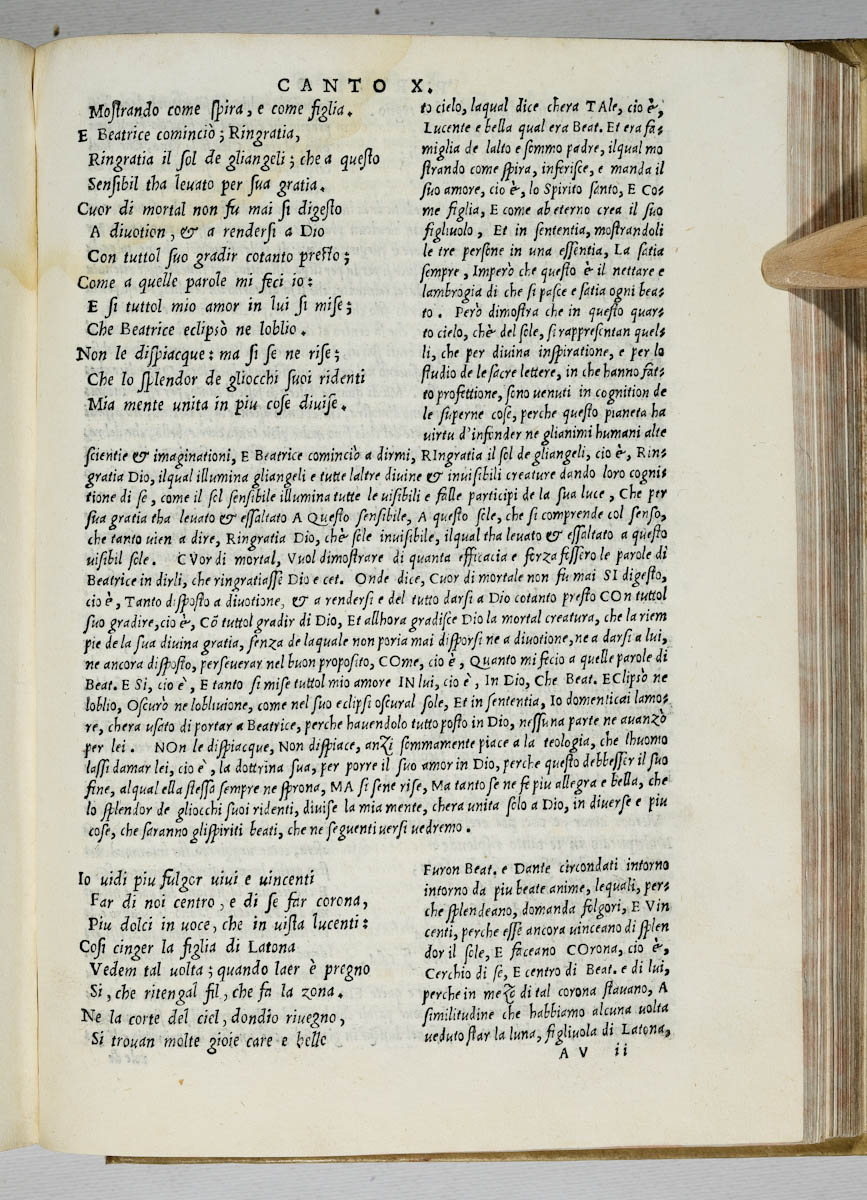 CANTO X.
Mostrando come spira, e come figlia.
E Beatrice cominciò; Ringratia,
Ringratia il sol de gliangeli; che a questo
Sensibil tha leuato per sua gratia.
Cuor di mortal non fu mai si digesto
A diuotion, & a rendersi a Dio
Con tuttol suo gradir cotanto presto;
Come a quelle parole mi feci io:
E si tuttol mio amor in lui si mise;
Che Beatrice eclipsò ne loblio.
Non le dispiacque: ma si se ne rise;
Che lo splendor de gliocchi suoi ridenti
Mia mente unita in piu cose diuise.
to cielo, laqual dice chera TAle, cio è,
Lucente e bella qual era Beat. Et era fa-
miglia de lalto e sommo padre, ilqual mo
strando come spira, inferisce, e manda il
suo amore, cio è, lo Spirito santo, E Co-
me figlia, E come ab eterno crea il suo
figliuolo, Et in sententia, mostrandoli
le tre persone in una essentia, La satia
sempre, Imperò che questo è il nettare e
lambrogia di che si pasce e satia ogni bea-
to. Però dimostra che in questo quar-
to cielo, chè del sole, si rappresentan quel-
li, che per diuina inspiratione, e per lo
studio de le sacre lettere, in che hanno fat-
to professione, sono uenuti in cognition de
le superne cose, perche questo pianeta ha
uirtu d'infonder ne glianimi humani alte
scientie & imaginationi, E Beatrice cominciò a dirmi, RIngratia il sol de gliangeli, cio è, Rin-
gratia Dio, ilqual illumina gliangeli e tutte laltre diuine & inuisibili creature dando loro cogni-
tione di se, come il sol sensibile illumina tutte le uisibili e falle participi de la sua luce, Che per
sua gratia tha leuato & essaltato A Questo sensibile, A questo sole, che si comprende col senso,
che tanto uien a dire, Ringratia Dio, chè sole inuisibile, ilqual tha leuato & essaltato a questo
uisibil sole. CVor di mortal, Vuol dimostrare di quanta efficacia e forza fossero le parole di
Beatrice in dirli, che ringratiasse Dio e cet. Onde dice, Cuor di mortale non fu mai SI digesto,
cio è, Tanto disposto a diuotione, & a rendersi e del tutto darsi a Dio cotanto presto COn tuttol
suo gradire, cio è, Cõ tuttol gradir di Dio, Et allhora gradisce Dio la mortal creatura, che la riem
pie de la sua diuina gratia, senza de laquale non poria mai disporsi ne a diuotione, ne a darsi a lui,
ne ancora disposto, perseuerar nel buon proposito, COme, cio è, Quanto mi fecio a quelle parole di
Beat. E SI, cio è, E tanto si mise tuttol mio amore IN lui, cio è, In Dio, Che Beat. EClipsò ne
loblio, Oscurò ne lobliuione, come nel suo eclipsi oscural sole, Et in sententia, Io domenticai lamo-
re, chera usato di portar a Beatrice, perche hauendolo tutto posto in Dio, nessuna parte ne auanzò
per lei. NOn le dispiacque, Non dispiace, anzi sommamente piace a la teologia, che lhuomo
lassi damar lei, cio è, la dottrina sua, per porre il suo amor in Dio, perche questo debbesser il suo
fine, alqual ella stessa sempre ne sprona, MA si sene rise, Ma tanto se ne fe piu allegra e bella, che
lo splendor de gliocchi suoi ridenti, diuise la mia mente, chera unita solo a Dio, in diuerse e piu
cose, che saranno glispiriti beati, che ne seguenti uersi uedremo.
Io uidi piu fulgor uiui e uincenti
Far di noi centro, e di se far corona,
Piu dolci in uoce, che in uista lucenti:
Cosi cinger la figlia di Latona
Vedem tal uolta; quando laer è pregno
Si, che ritengal fil, che fa la zona.
Ne la corte del ciel, dondio riuegno,
Si trouan molte gioie care e belle
Furon Beat. e Dante circondati intorno
intorno da piu beate anime, lequali, per-
che splendeano, domanda folgori, E Vin
centi, perche esse ancora uinceano di splen
dor il sole, E faceano COrona, cio è,
Cerchio di se, E centro di Beat. e di lui,
perche in mezo di tal corona stauano, A
similitudine che habbiamo alcuna uolta
ueduto star la luna, figliuola di Latona,
A V ii